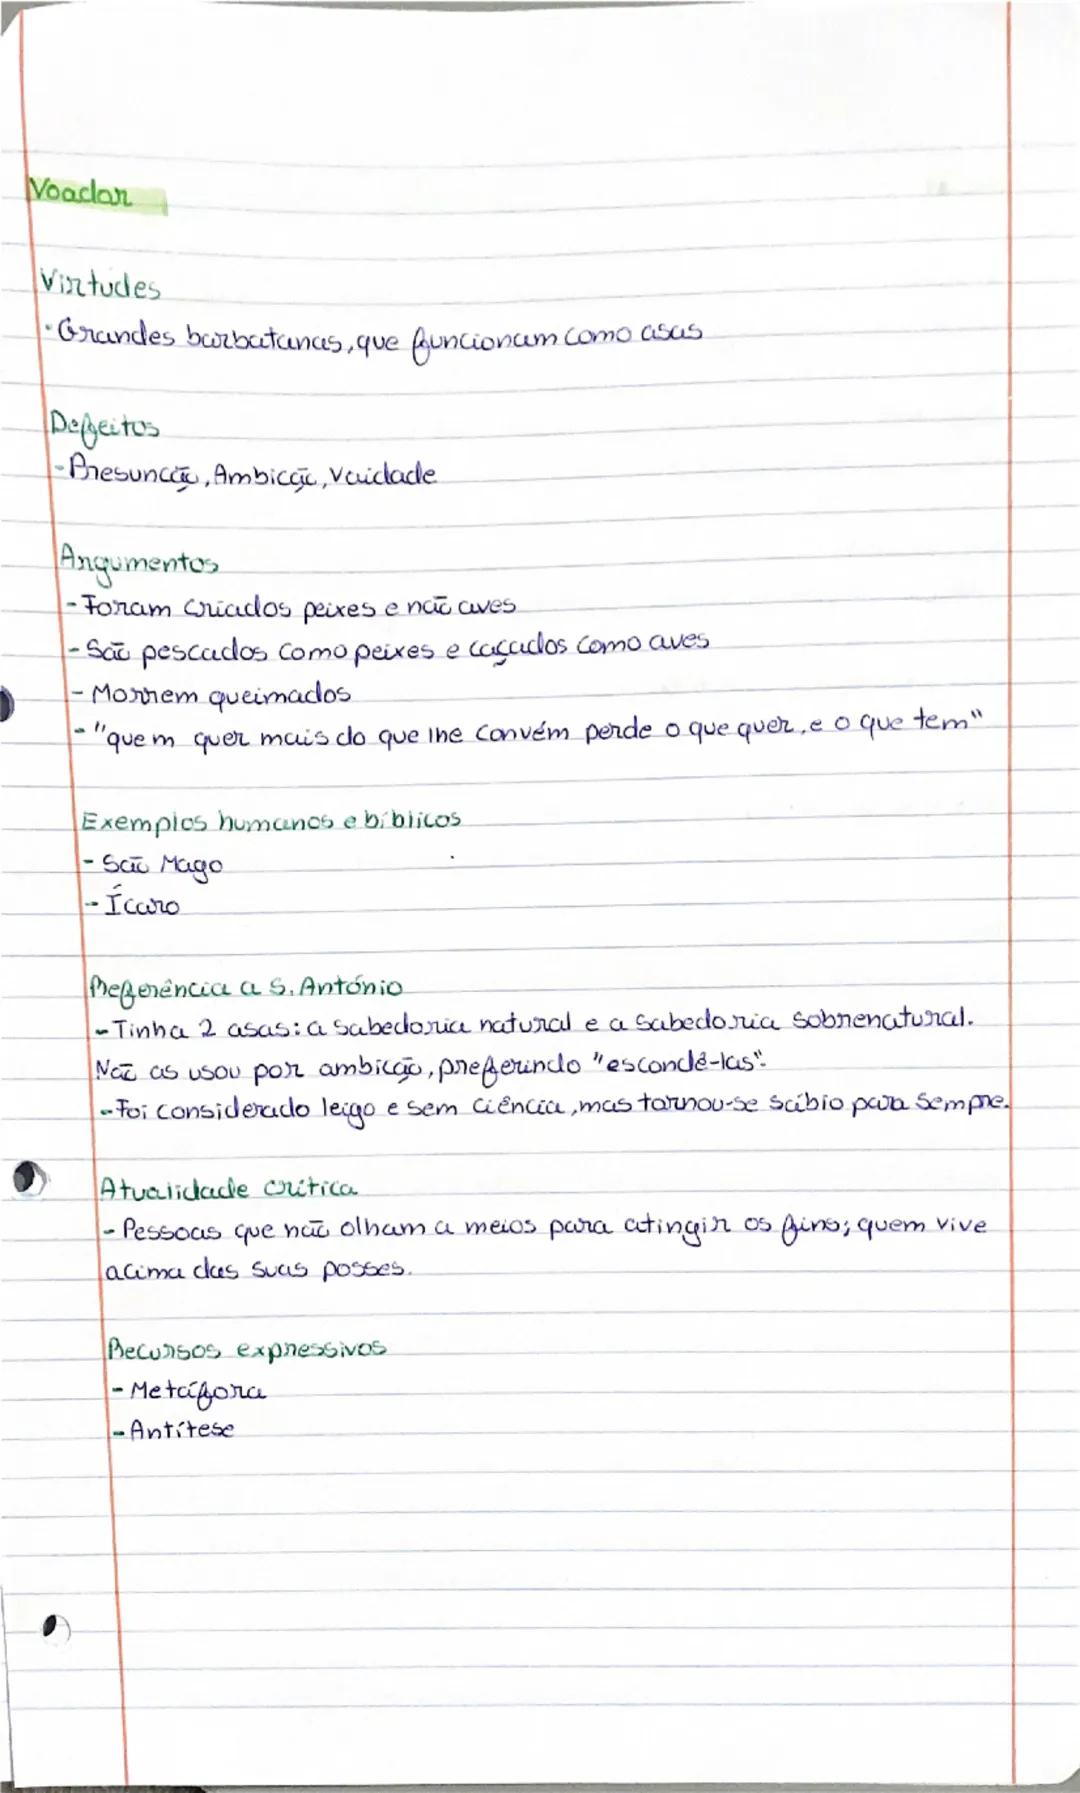 Voador
Virtudes
- Grandes barbatanas, que funcionam como asas
Defeitos
- Presunção, Ambicção, Vaidade
Argumentos
- Foram criados peixes e não aves
- São pescados como peixes e caçados como aves
- Morrem queimados
- "quem quer mais do que lhe convém perde o que quer, e o que tem"
Exemplos humanos e bíblicos
- São Mago
- Ícaro
Referência a S. António
- Tinha 2 asas: a sabedoria natural e a sabedoria sobrenatural.
Não as usou por ambicção, preferindo "escondê-las".
- Foi considerado leigo e sem ciência, mas tornou-se sábio para sempre.
Atualidade crítica
- Pessoas que não olham a meios para atingir os fins; quem vive
acima das suas posses.
Recursos expressivos
- Metáfora
- Antítese